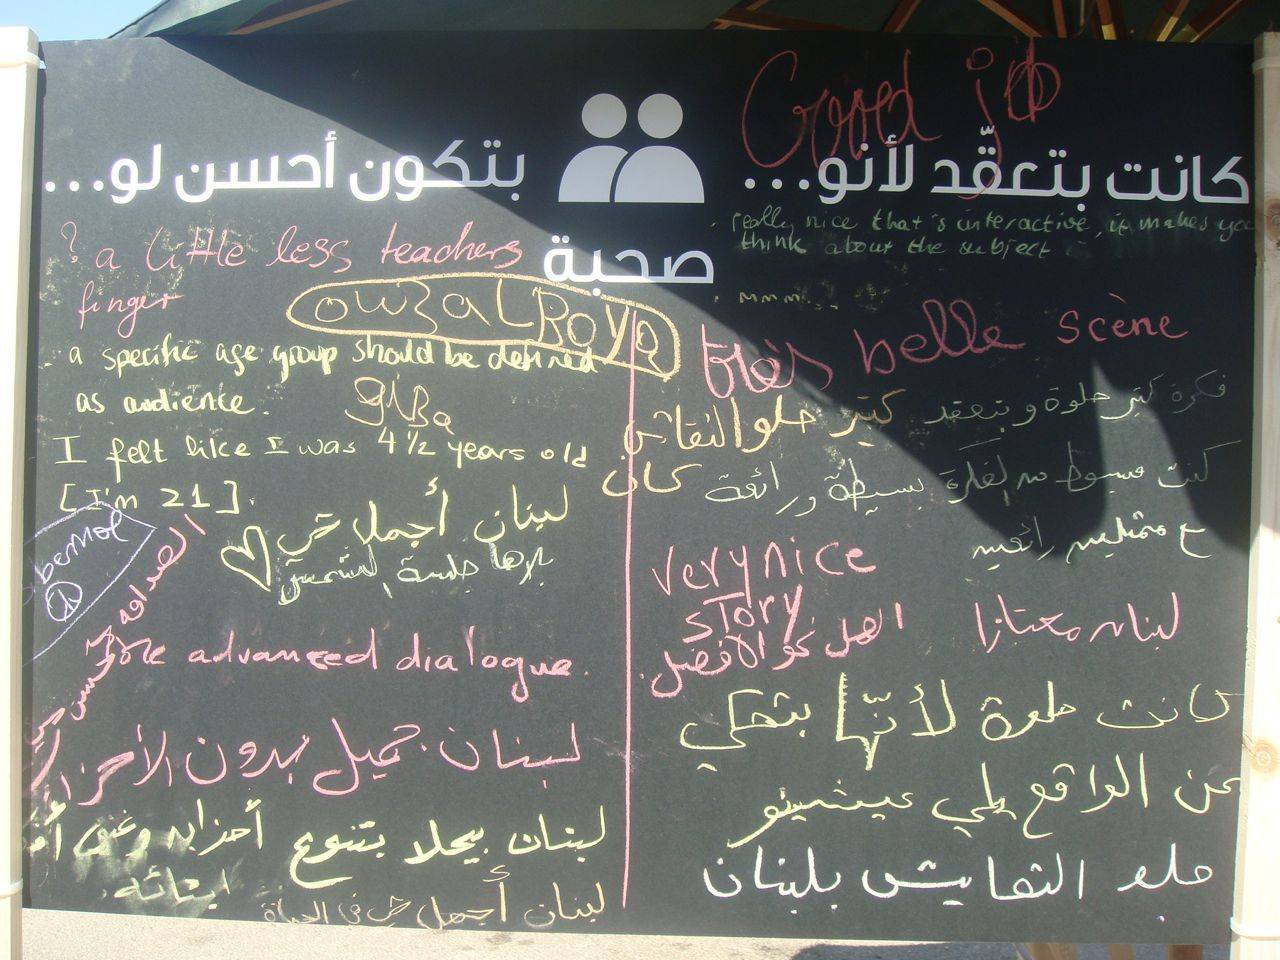 Good job
كانت بتعقّد لأنو...
بتكون أحسن لو...
صحبة
really nice that's interactive, it makes you
think about the subject
mmm...
très belle scène
فكرة كتير حلوة وبتعقد
كتير حلو النقاش
كان
كنت مبسوط من الفكرة بسيطة ورائعة
مع ممثلين رائعين
very nice
story
لبنان ممتاز
الأفضل
كانت حلوة لأنّها بتحكي
عن الواقع يلي عيشينو
حلو التعايش بلبنان
? a little less teachers
finger
- a specific age group should be defined
as audience.
I felt like I was 4 1/2 years old
[I'm 21].
لبنان أجمل
bemol
الصداقة
more advanced dialogue.
لبنان جميل بدون الأحزاب
لبنان بيحلا بتنوع أحزابه وغنى
أبنائه
لبنان أجمل شي في الحياة